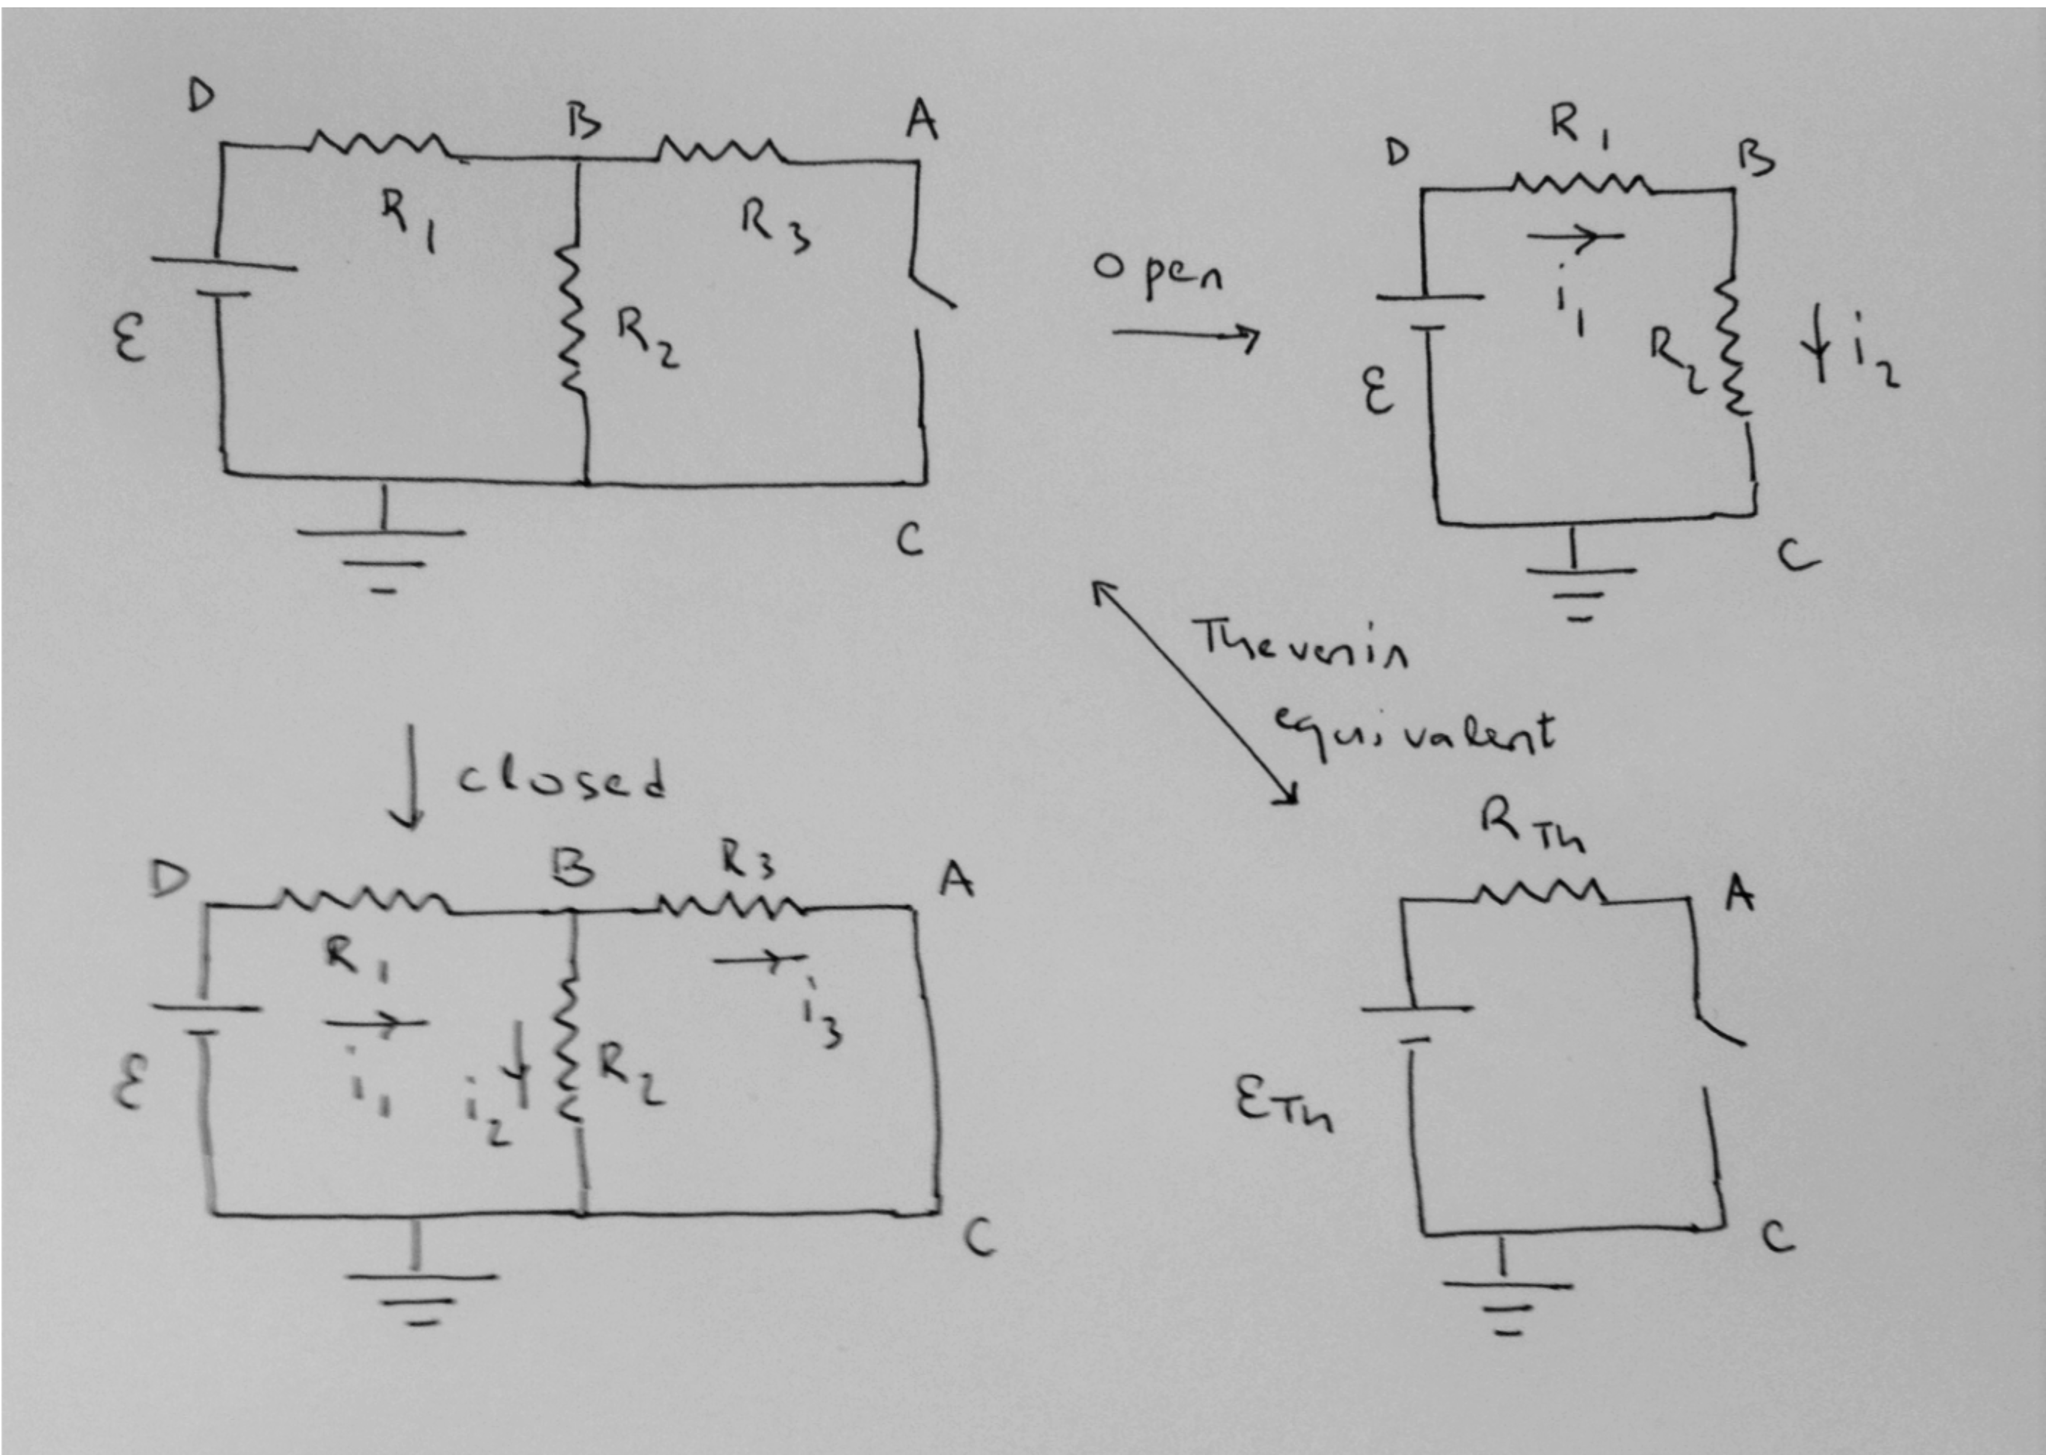 D
B
A
R1
R3
R2
ε
C
open
D
R1
B
i1
R2
i2
ε
C
Thevenin
equivalent
closed
D
B
R3
A
R1
i1
i2
R2
i3
ε
C
RTh
A
εTh
C